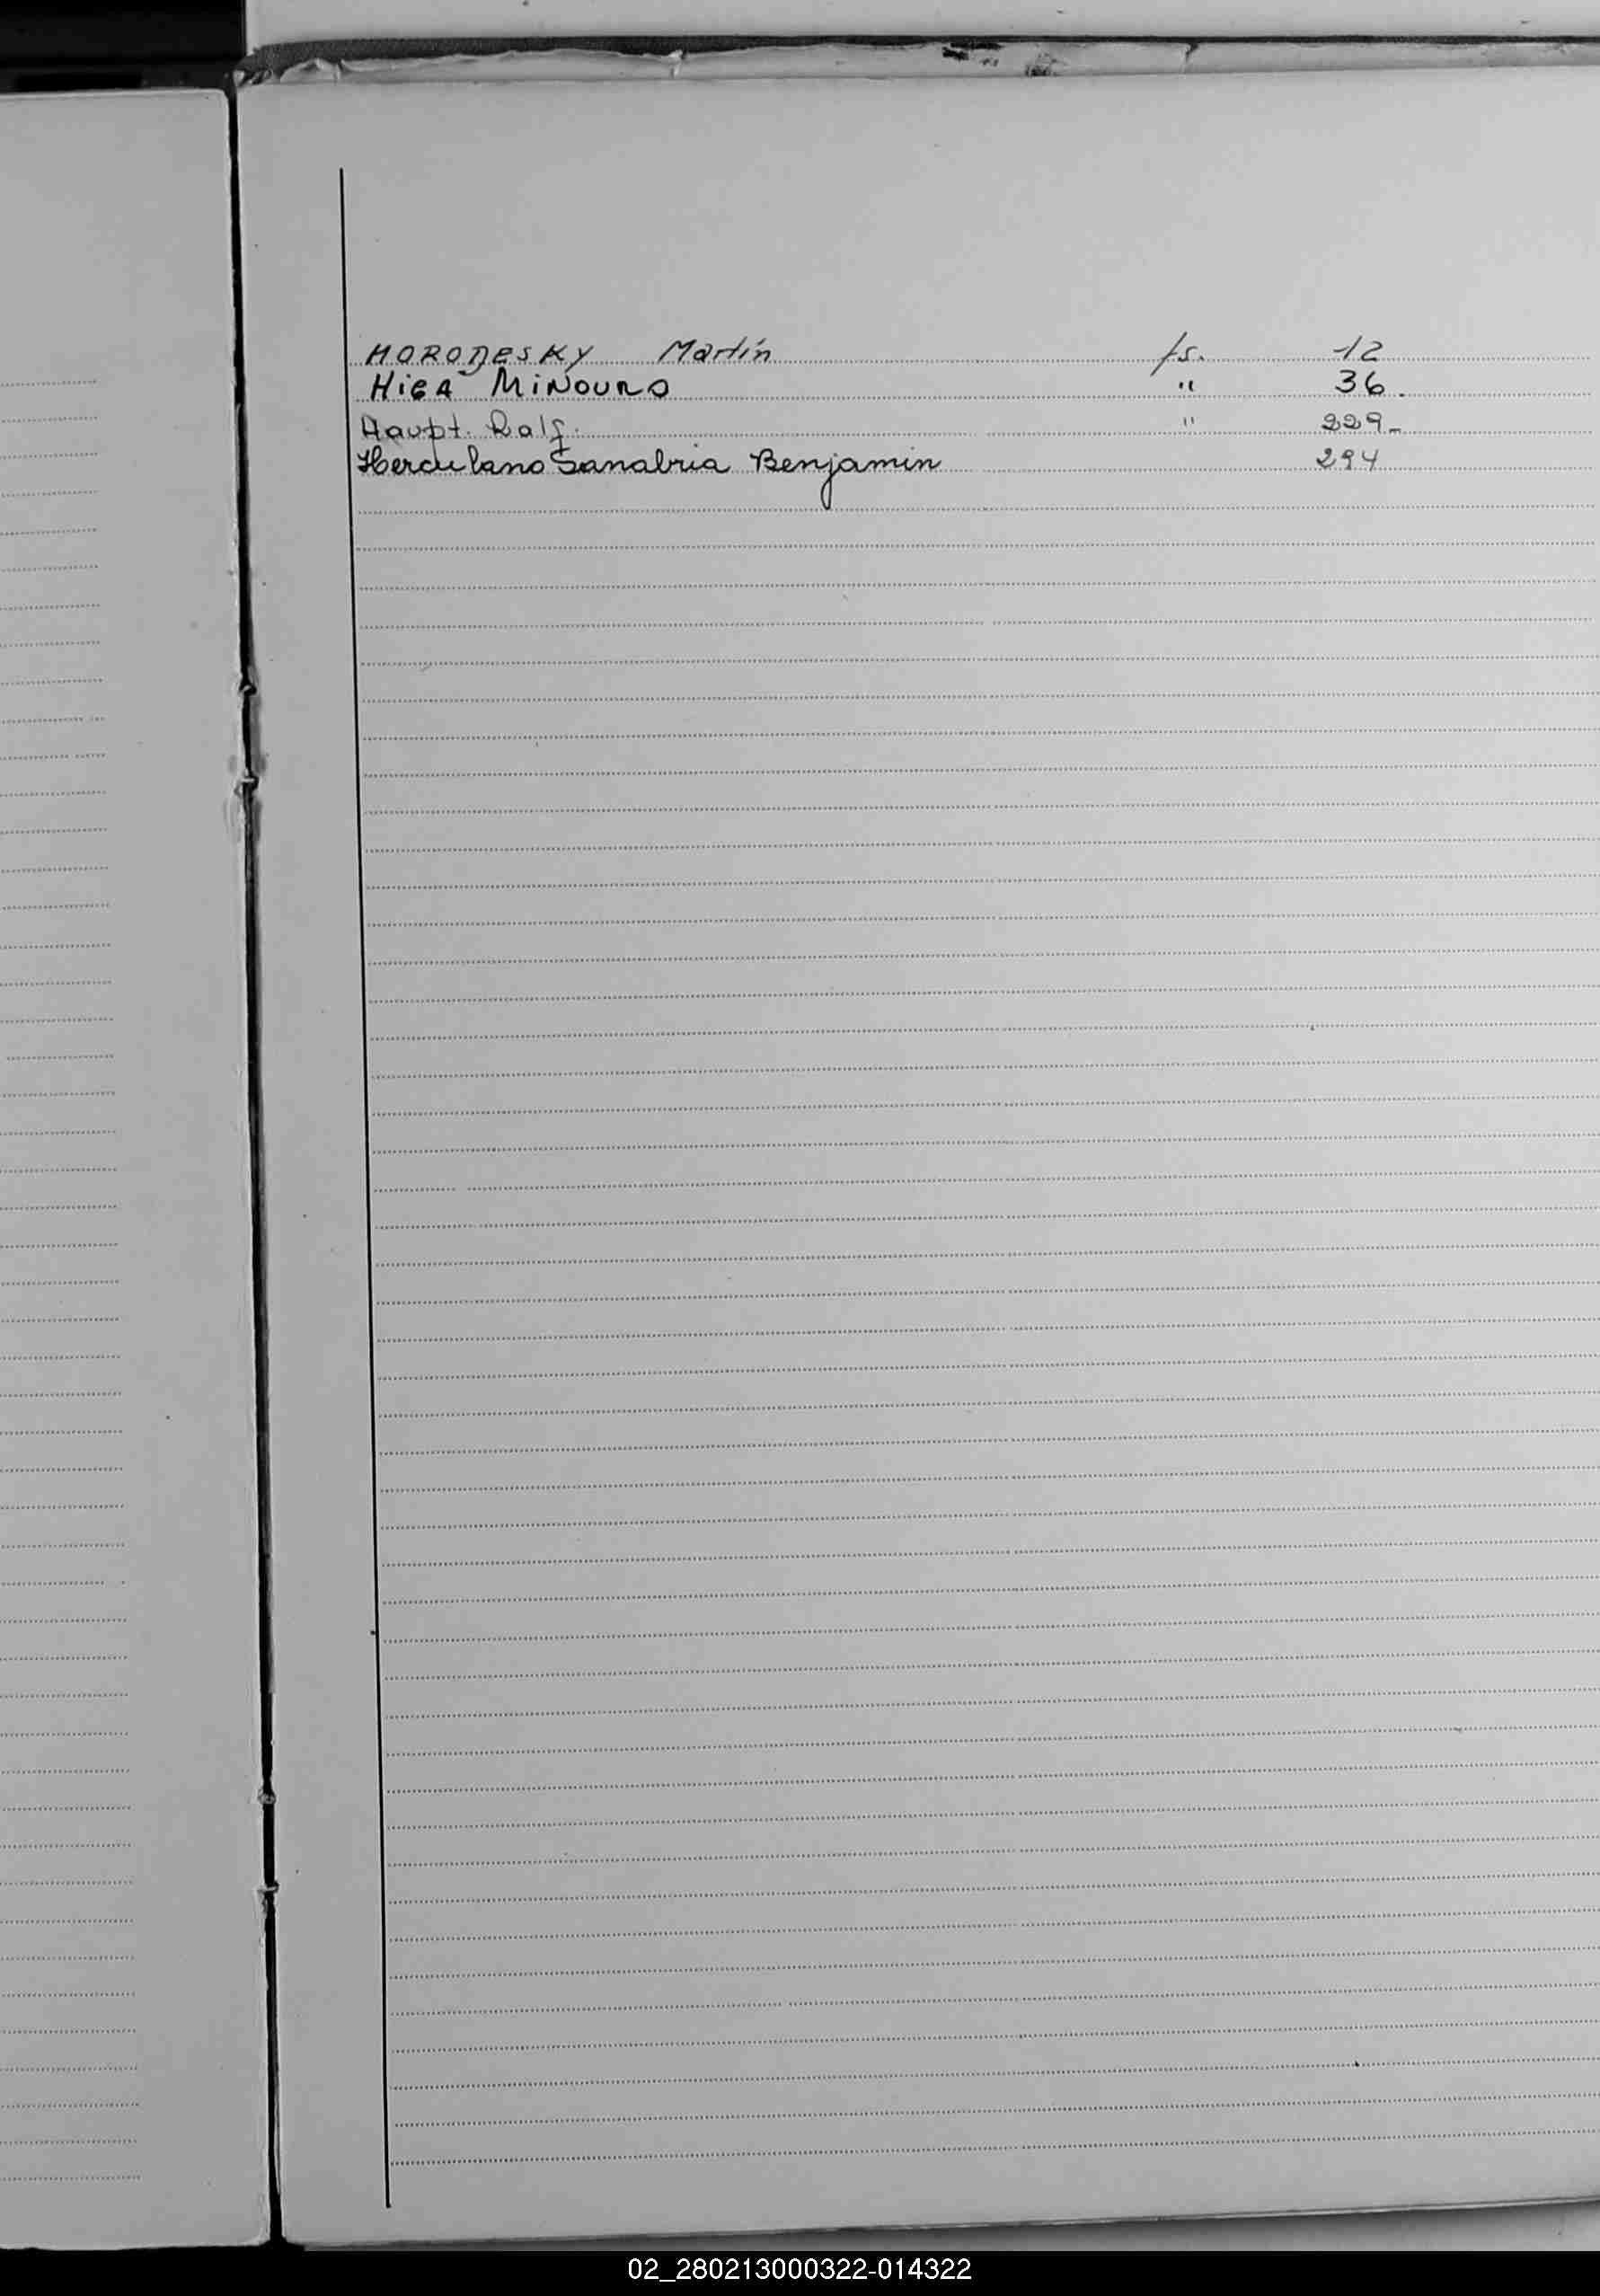 HORODESKY Martín fs. 12
HiGA MiNOURO " 36.
Haupt. Ralf. " 229-
Herculano Sanabria Benjamin 294
02_280213000322-014322